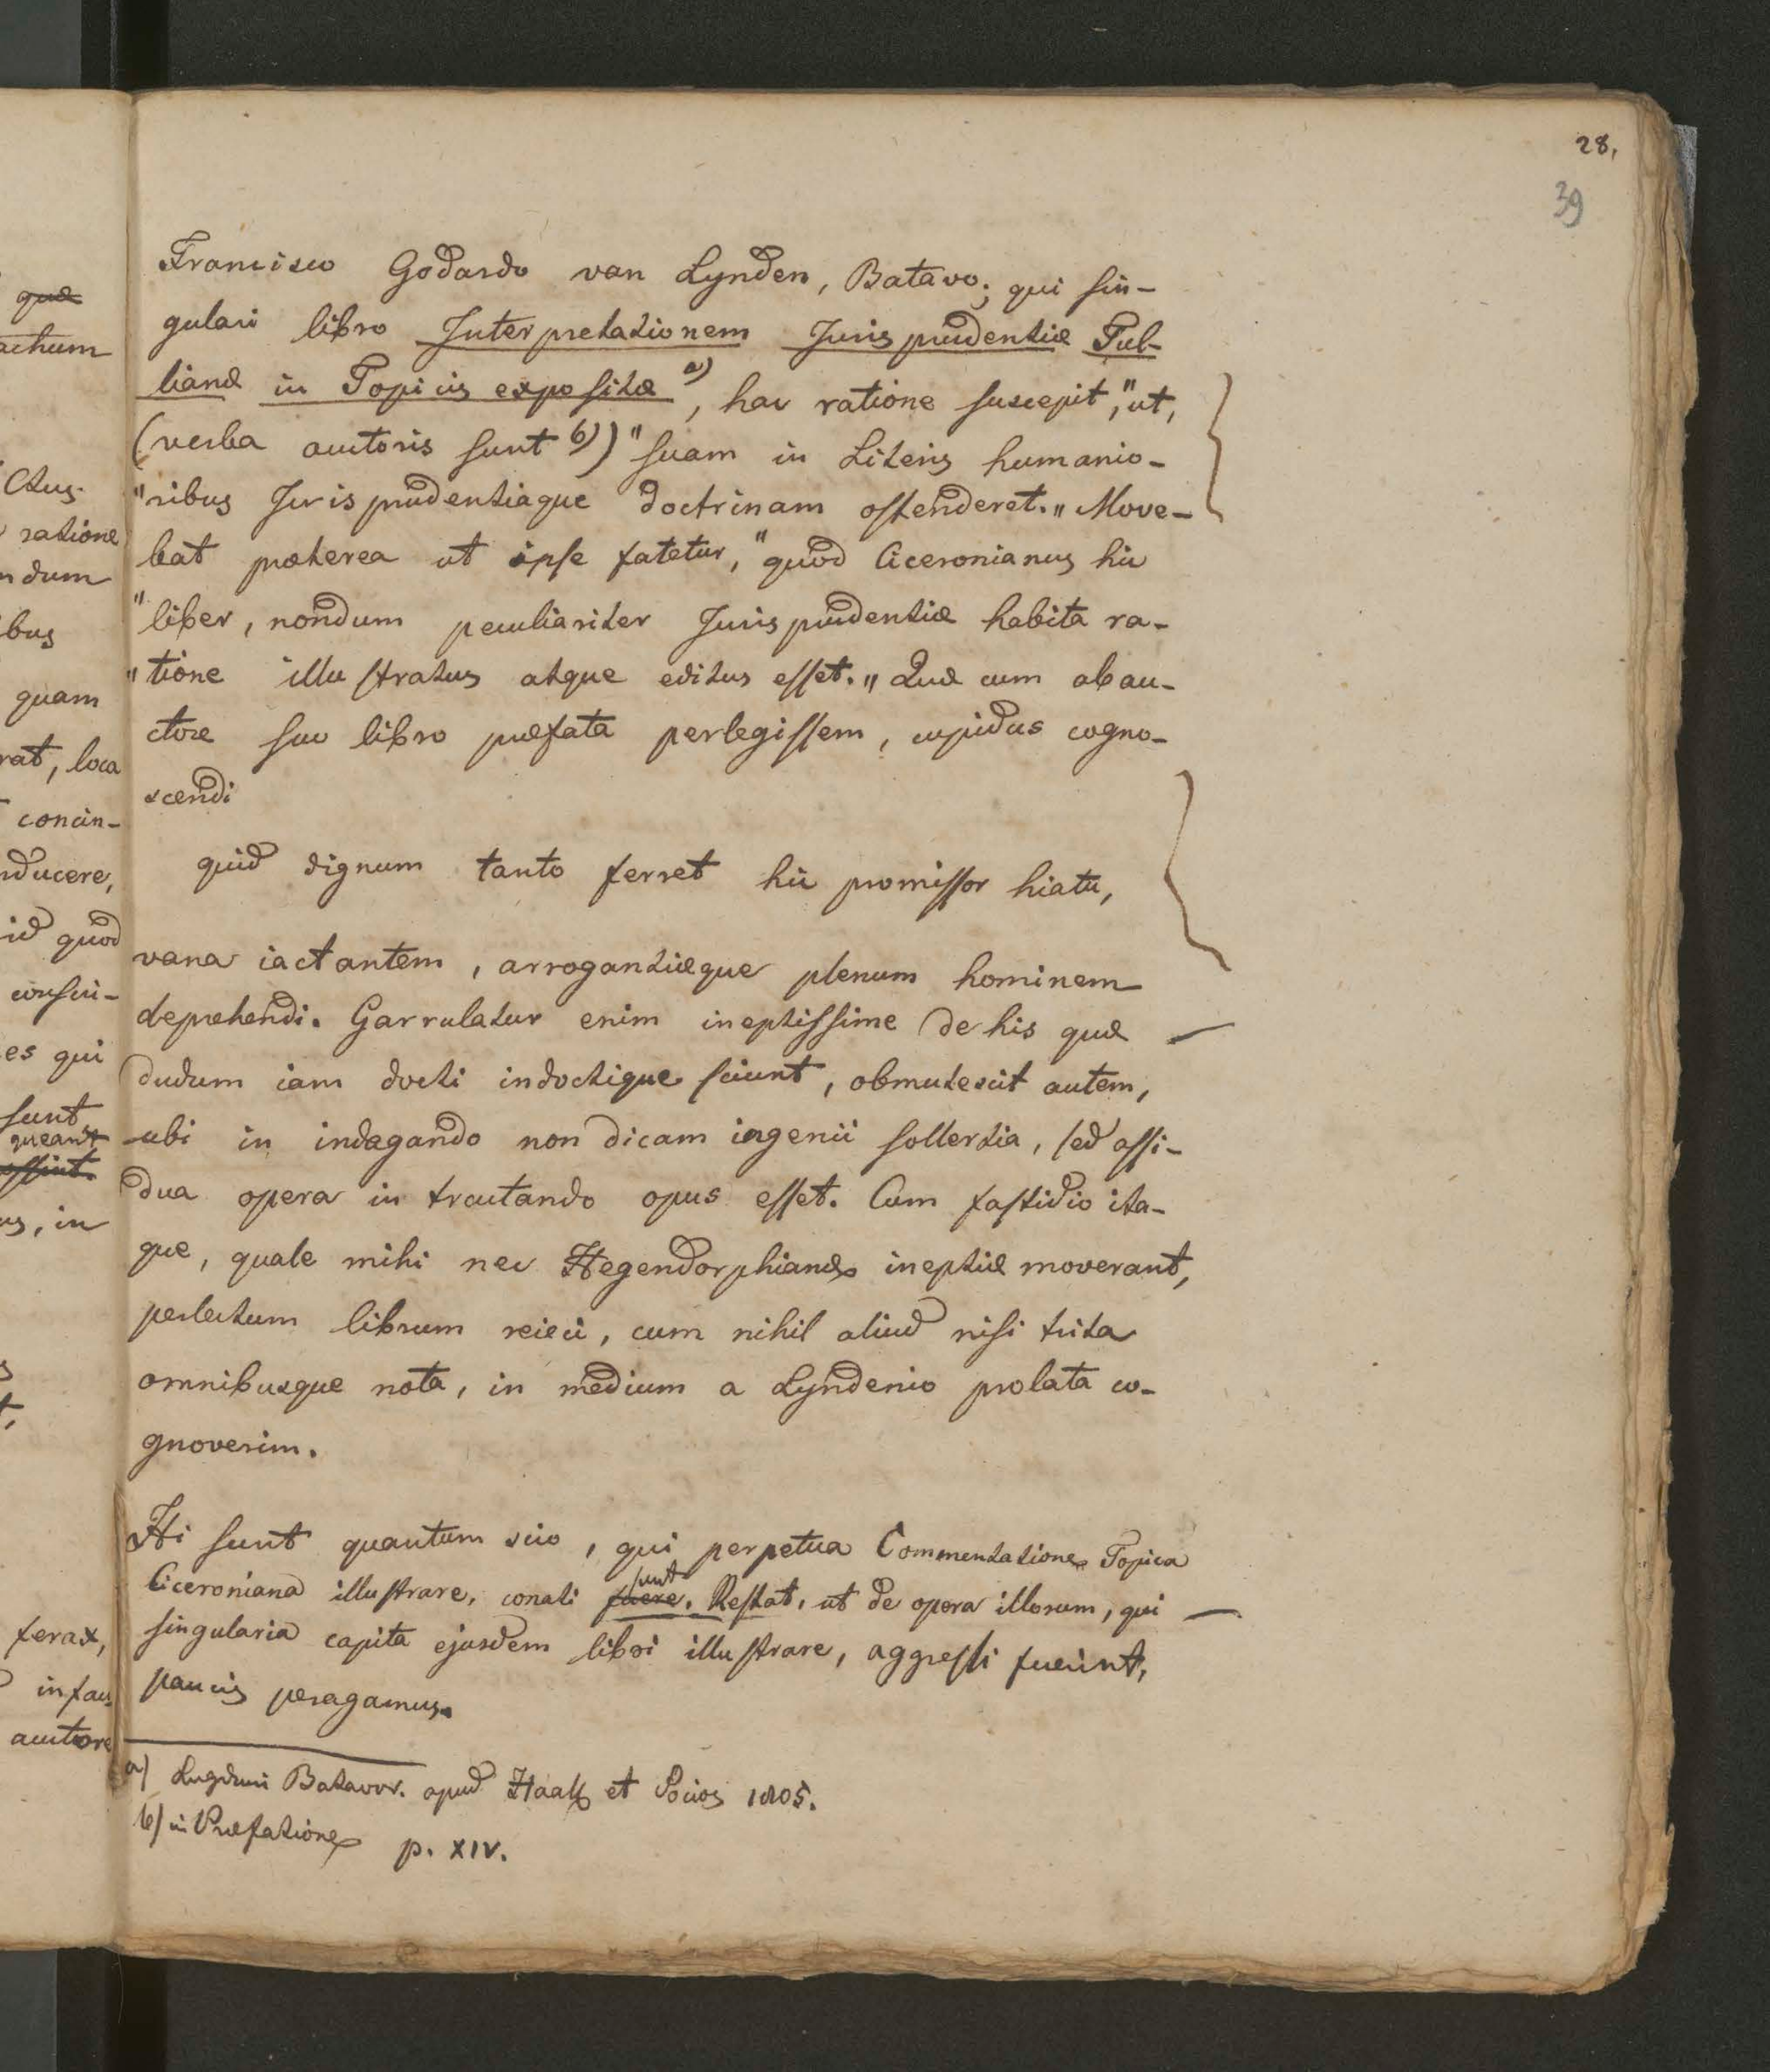 28,
39
Francisco Godardo van Lynden, Batavo; qui sin-
gulari libro Interpretationem Jurisprudentiæ Tul-
lianæ in Topicis expositæ a), hac ratione suscepit, "ut,
(verba auctoris sunt b)) "suam in Literis humanio-
"ribus Jurisprudentiaque doctrinam ostenderet.„ Move-
bat præterea ut ipse fatetur, "quod Ciceronianus hic
"liber, nondum peculiariter Jurisprudentiæ habita ra-
"tione illustratus atque editus esset.„ Quæ cum ab au-
ctore suo libro præfata perlegissem, cupidus cogno-
scendi
quid dignum tanto ferret hic promissor hiatu,
vana iactantem, arrogantiæque plenum hominem
deprehendi. Garrulatur enim ineptissime de his quæ
dudum iam docti indoctique sciunt, obmutescit autem,
ubi in indagando non dicam ingenii sollertia, sed assi-
dua opera in tractando opus esset. Cum fastidio ita-
que, quale mihi nec Hegendorphianæ ineptiæ moverant,
perlectum librum reieci, cum nihil aliud nisi trita
omnibusque nota, in medium a Lyndenio prolata co-
gnoverim.
Hi sunt quantum scio, qui perpetua Commentatione Topica
Ciceroniana illustrare, conati fuere. sunt Restat, ut de opera illorum, qui
singularia capita ejusdem libri illustrare, aggressi fuerint,
paucis peragamus.
a) Lugduni Batavor. apud Haak et Socios 1805.
b) in Præfatione p. XIV.
quæ
actum
Ctus.
ratione
ndum
ibus
quam
rat, loca
concin-
nducere,
id quod
conscri-
es qui
sunt
queant
us, in
ferax,
auctore